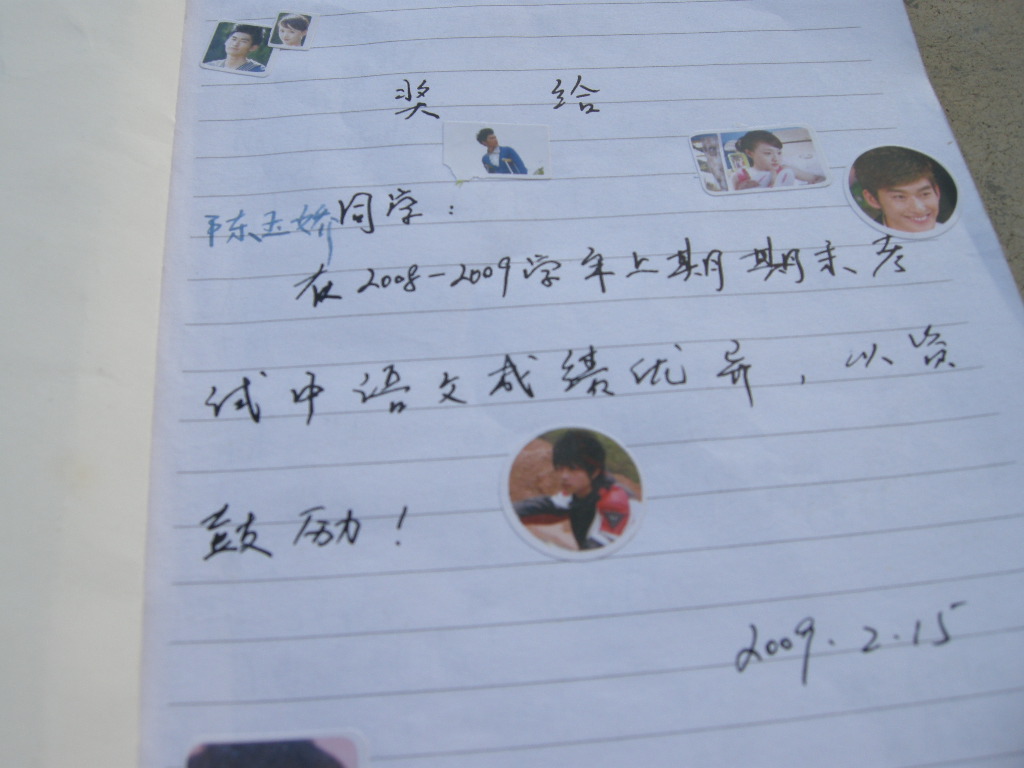 奖 给
陈玉娇同学：
在2008-2009学年上期期末考
试中语文成绩优异，以资
鼓励！
2009.2.15